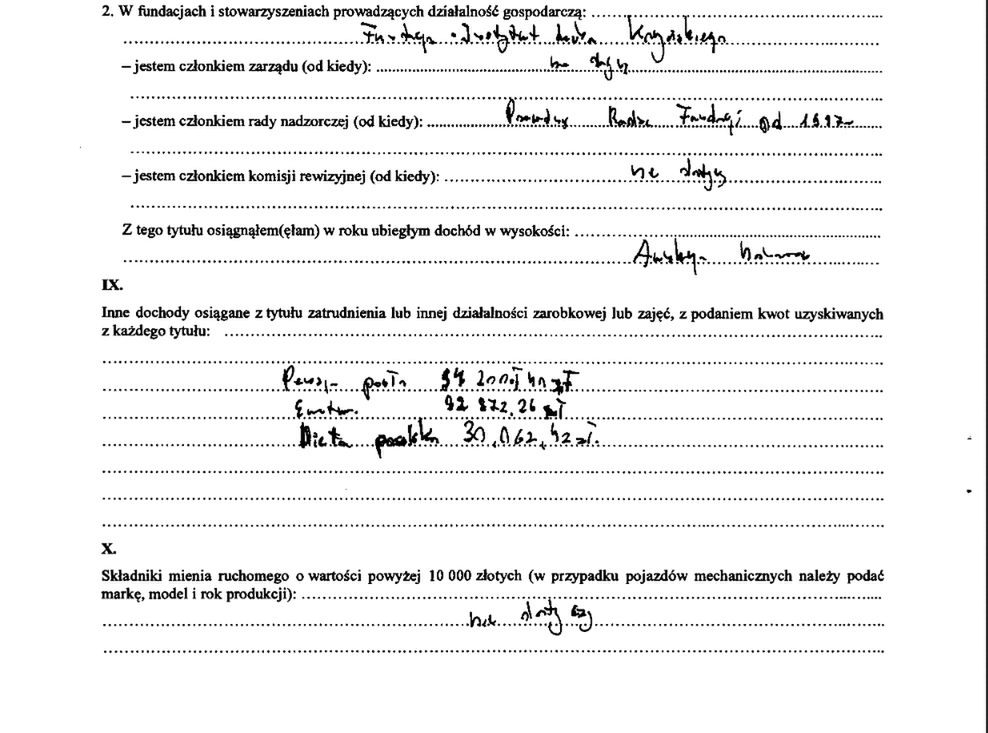 2. W fundacjach i stowarzyszeniach prowadzących działalność gospodarczą:
Instytut Kryńskiego
– jestem członkiem zarządu (od kiedy):
– jestem członkiem rady nadzorczej (od kiedy):
Fundacji od
– jestem członkiem komisji rewizyjnej (od kiedy):
nie dotyczy
Z tego tytułu osiągnąłem(ęłam) w roku ubiegłym dochód w wysokości:
IX.
Inne dochody osiągane z tytułu zatrudnienia lub innej działalności zarobkowej lub zajęć, z podaniem kwot uzyskiwanych
z każdego tytułu:
zł
zł
Dieta 30.062,42 zł.
X.
Składniki mienia ruchomego o wartości powyżej 10 000 złotych (w przypadku pojazdów mechanicznych należy podać
markę, model i rok produkcji):
nie dotyczy